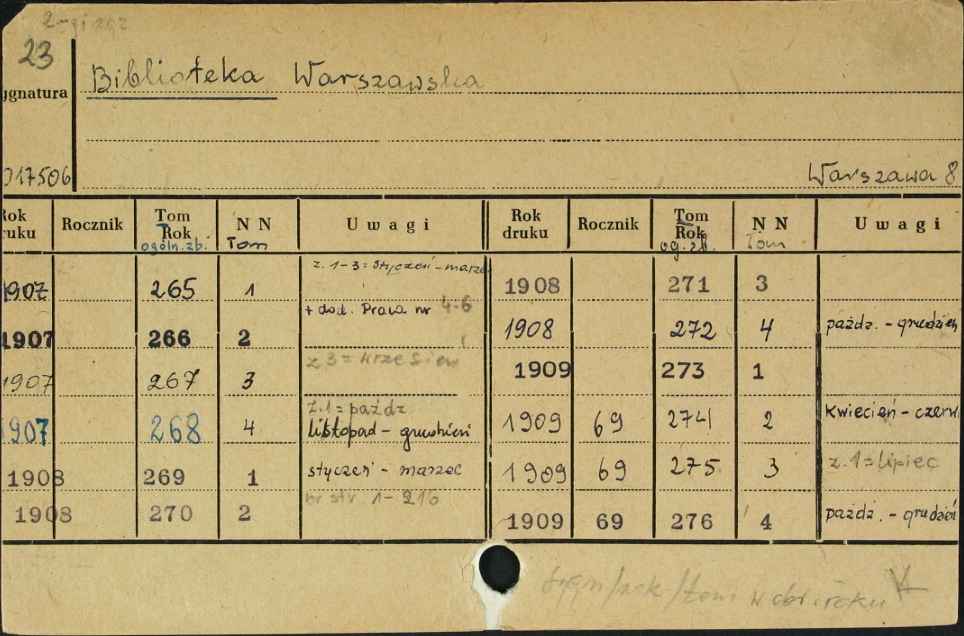 2-gi egz
23
Biblioteka Warszawska
ygnatura
017506
Warszawa 8
Rok druku Rocznik Tom Rok ogóln.zb. N N Tom Uwagi Rok druku Rocznik Tom Rok og.zb. N N Tom Uwagi
1907 265 1 z. 1-3 = styczeń - marzec 1908 271 3
1907 266 2 + dod. Prawa nr 4-6 1908 272 4 paźdz. - grudzień
1907 267 3 z 3 = wrzesień 1909 273 1
1907 268 4 z.1 = paźdz listopad - grudzień 1909 69 274 2 kwiecień - czerw.
1908 269 1 styczeń - marzec 1909 69 275 3 z.1 = lipiec
1908 270 2 nr str. 1-216 1909 69 276 4 paźdz. - grudzień